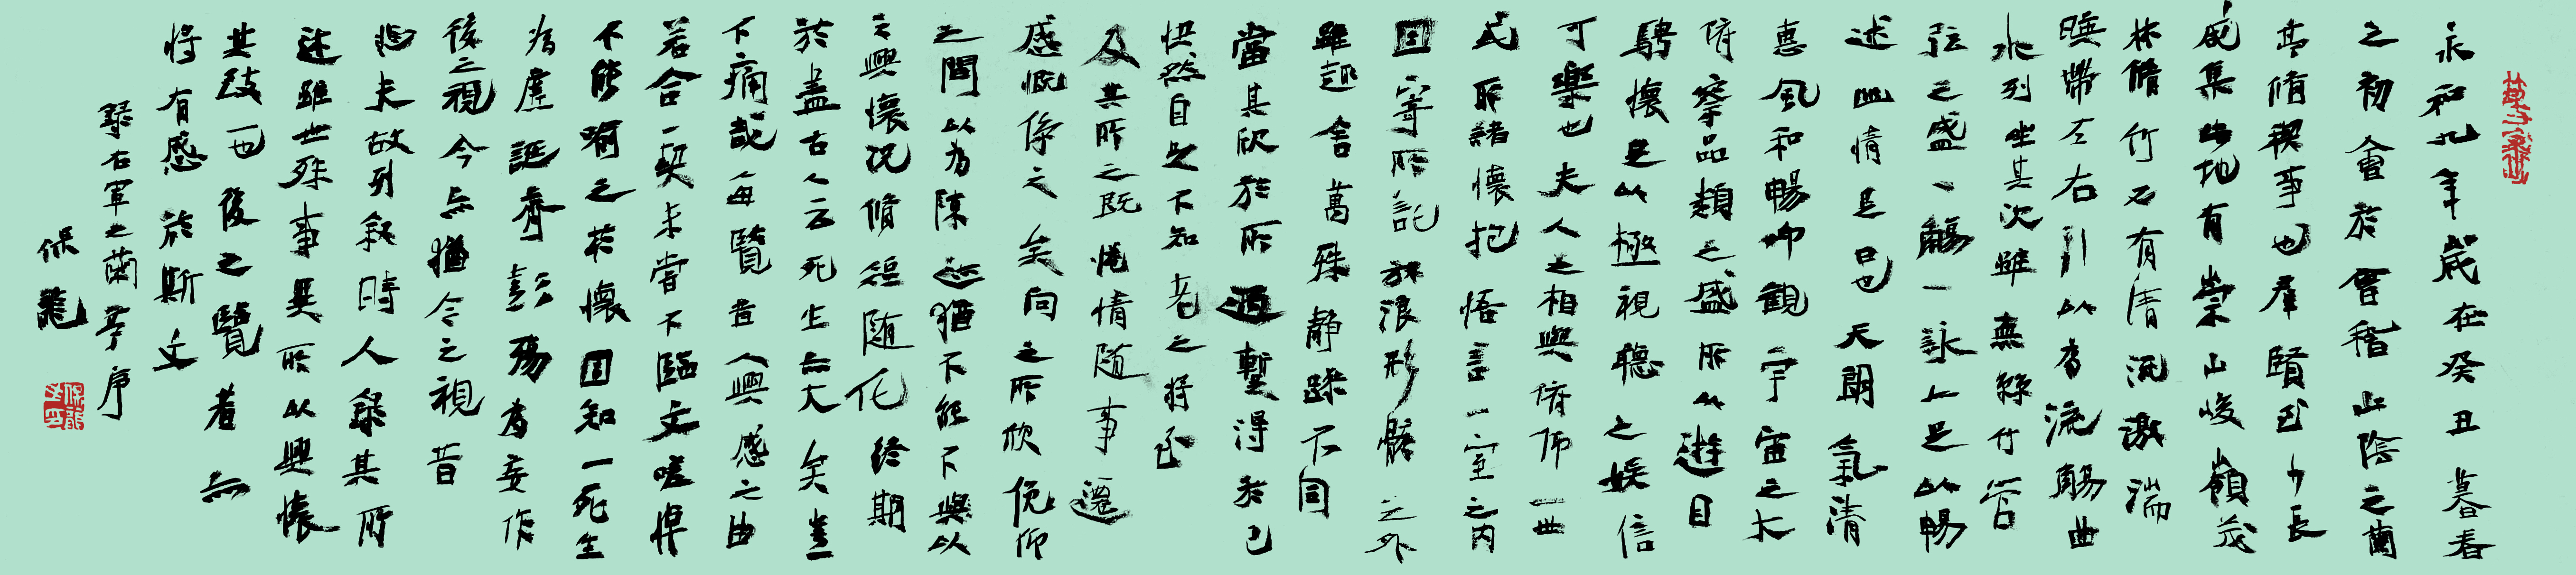 永和九年歲在癸丑暮春
之初會於會稽山陰之蘭
亭脩禊事也群賢至少長
咸集此地有崇山峻嶺茂
林脩竹又有清流激湍
暎帶左右引以為流觴曲
水列坐其次雖無絲竹管
弦之盛一觴一詠亦足以暢
述幽情是日也天朗氣清
惠風和暢仰觀宇宙之大
俯察品類之盛所以遊目
騁懷足以極視聽之娛信
可樂也夫人之相與俯仰一世
或取諸懷抱悟言一室之內
因寄所託放浪形骸之外
雖趣舍萬殊靜躁不同
當其欣於所遇暫得於己
快然自足不知老之將至
及其所之既惓情隨事遷
感慨係之矣向之所欣俛仰
之間以為陳迹猶不能不與以
之興懷況脩短隨化終期
於盡古人云死生亦大矣豈
不痛哉每覽昔人興感之由
若合一契未嘗不臨文嗟悼
不能喻之於懷固知一死生
為虛誕齊彭殤為妄作
後之視今亦猶今之視昔
悲夫故列敘時人錄其所
述雖世殊事異所以興懷
其致一也後之覽者亦
將有感於斯文
錄右軍之蘭亭序
保龍